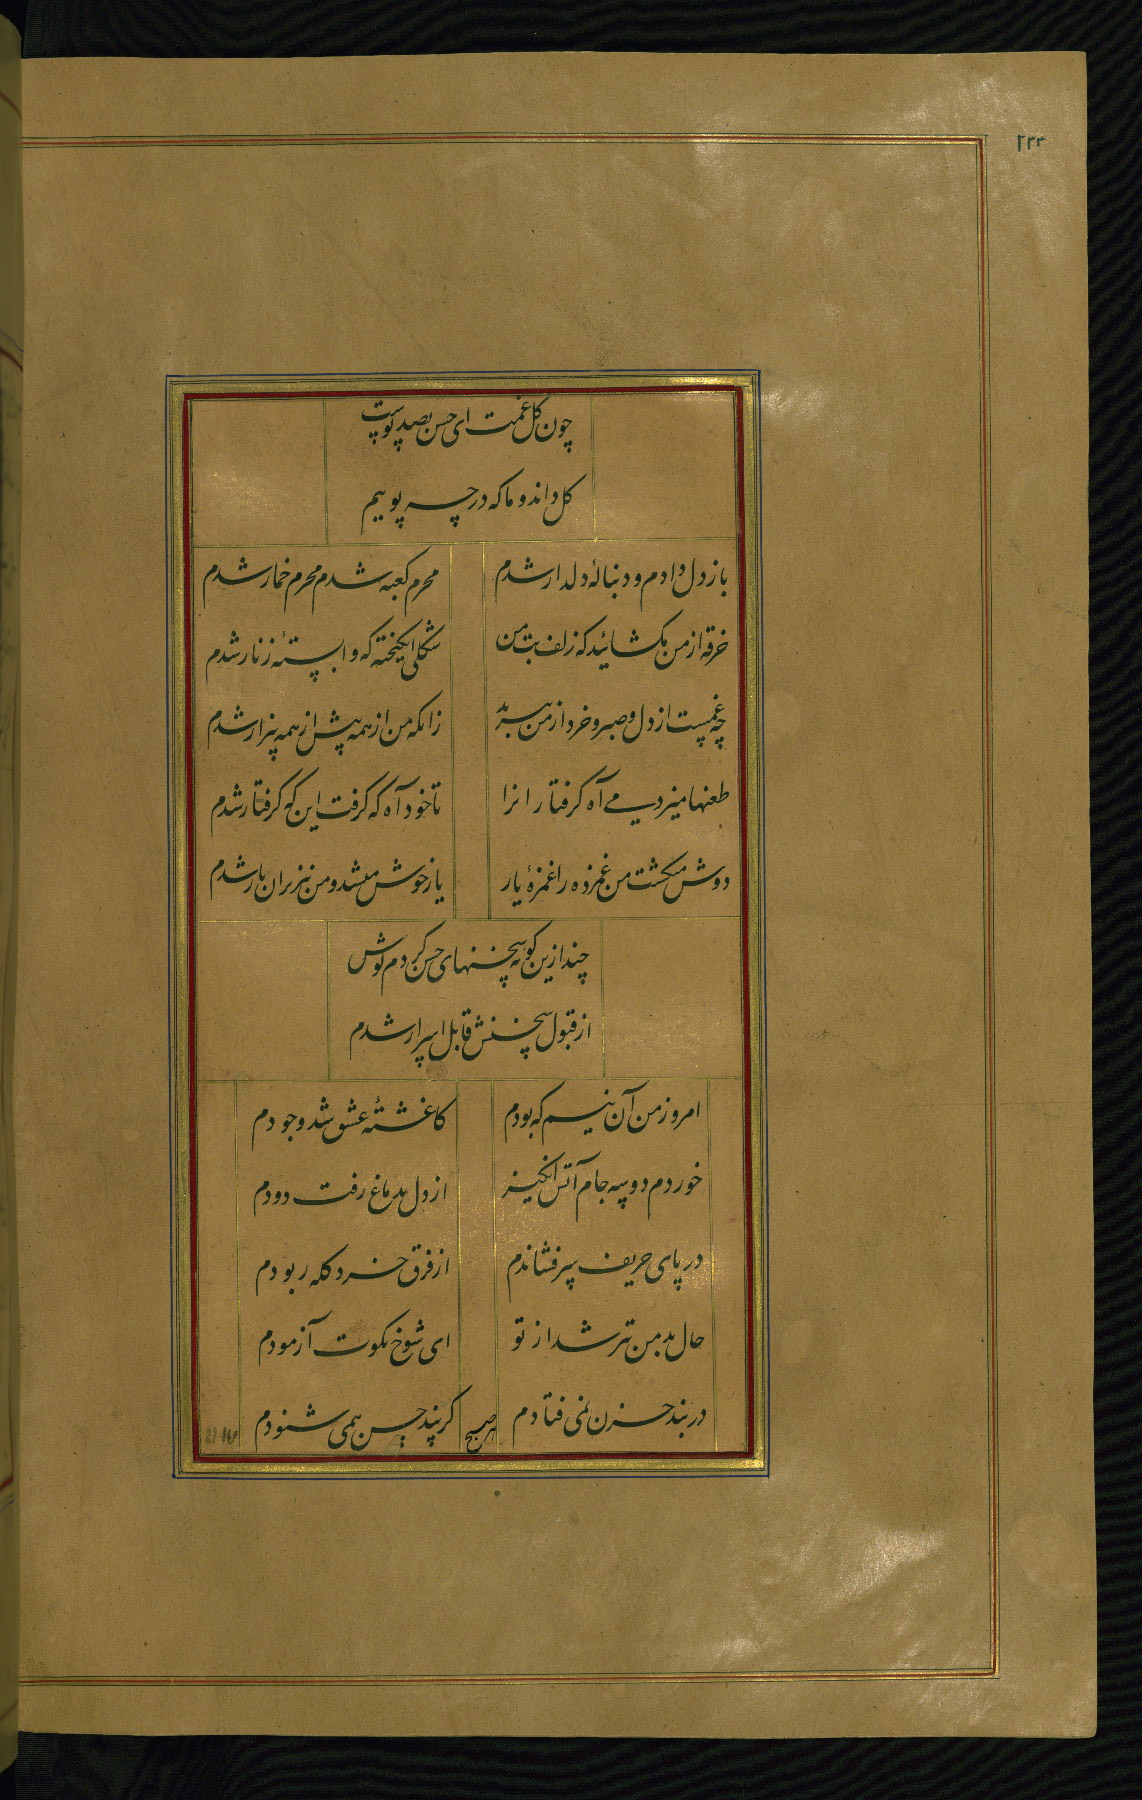 ۲۳۳
چون گل غمت ای حسن بصد پوست
گل داند و ما که در چه پوییم
باز دل دادم و دنبالهٔ دلدار شدم محرم کعبه شدم محرم خمار شدم
خرقه از من بگشائید که زلف بت من شکلی انگیخته که وابستهٔ زنار شدم
چه غمیست از دل و صبر و خرد از من ببرید زانکه من از همه پیش از همه بیزار شدم
طعنها میزدمی آه گرفتارانرا تا خود آه که گرفت این که گرفتار شدم
دوش میکشت من غمزده را غمزهٔ یار یار خوش میشد و من نیز بران یار شدم
چند ازین گونه سخنهای حسن کردم گوش
از قبول سخنش قابل اسرار شدم
امروز من آن نیم که بودم کاغشتهٔ عشق شد وجودم
خوردم دو سه جام آتش انگیز از دل بدماغ رفت دودم
در پای حریف سر فشاندم از فرق خرد کله ربودم
حال بد من بتر شد از تو ای شوخ نکوت آزمودم
در بند حزن نمی فتادم گر پند حسن همی شنودم
هر صبح